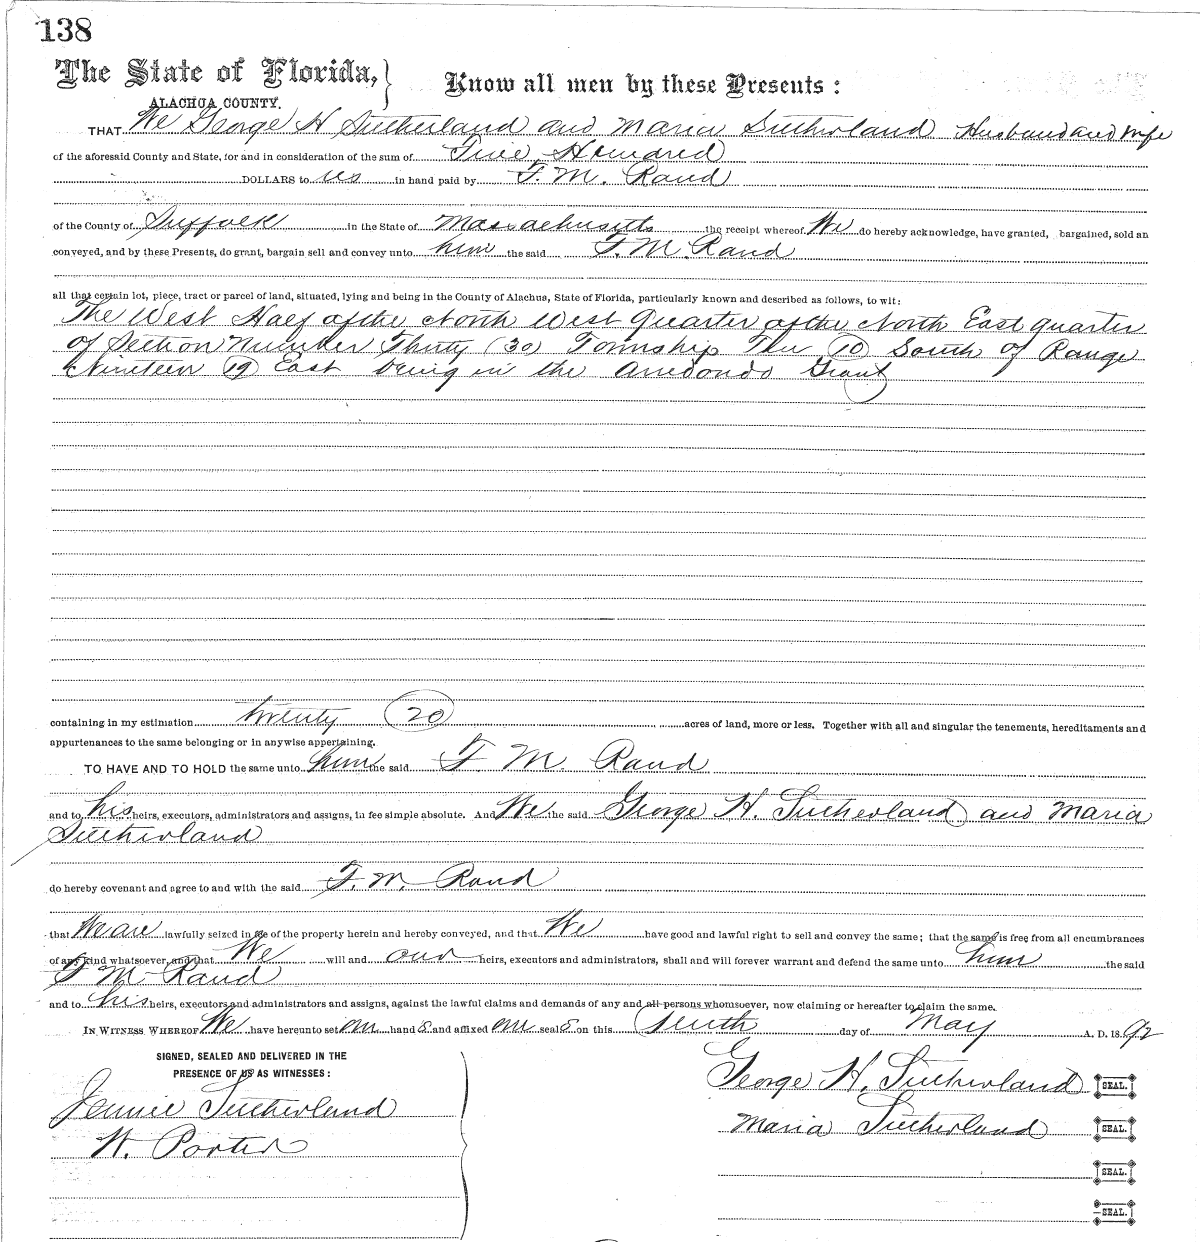 138
The State of Florida,
ALACHUA COUNTY.
Know all men by these Presents :
THAT We George H Sutherland and Maria Sutherland Husband and Wife
of the aforesaid County and State, for and in consideration of the sum of Five Hundred
DOLLARS to us in hand paid by F. M. Rand
of the County of Suffolk in the State of Massachusetts the receipt whereof We do hereby acknowledge, have granted, bargained, sold an
conveyed, and by these Presents, do grant, bargain sell and convey unto him the said F. M. Rand
all that certain lot, piece, tract or parcel of land, situated, lying and being in the County of Alachua, State of Florida, particularly known and described as follows, to wit:
The West Half of the North West quarter of the North East quarter
of Section Number Thirty (30) Township Ten (10) South of Range
Nineteen (19) East being in the Arredondo Grant
containing in my estimation twenty (20) acres of land, more or less. Together with all and singular the tenements, hereditaments and
appurtenances to the same belonging or in anywise appertaining.
TO HAVE AND TO HOLD the same unto him the said F M. Rand
and to his heirs, executors, administrators and assigns, in fee simple absolute. And We the said George H. Sutherland and Maria
Sutherland
do hereby covenant and agree to and with the said F. M. Rand
that We are lawfully seized in fee of the property herein and hereby conveyed, and that We have good and lawful right to sell and convey the same; that the same is free from all encumbrances
of any kind whatsoever, and that We will and our heirs, executors and administrators, shall and will forever warrant and defend the same unto him the said
F M Rand
and to his heirs, executors and administrators and assigns, against the lawful claims and demands of any and all persons whomsoever, now claiming or hereafter to claim the same.
IN WITNESS WHEREOF We have hereunto set our hand s and affixed our seal s on this Tenth day of May A. D. 18 92
SIGNED, SEALED AND DELIVERED IN THE
PRESENCE OF US AS WITNESSES :
George H. Sutherland SEAL.
Jennie Sutherland
Maria Sutherland SEAL.
W. Porter
SEAL.
SEAL.